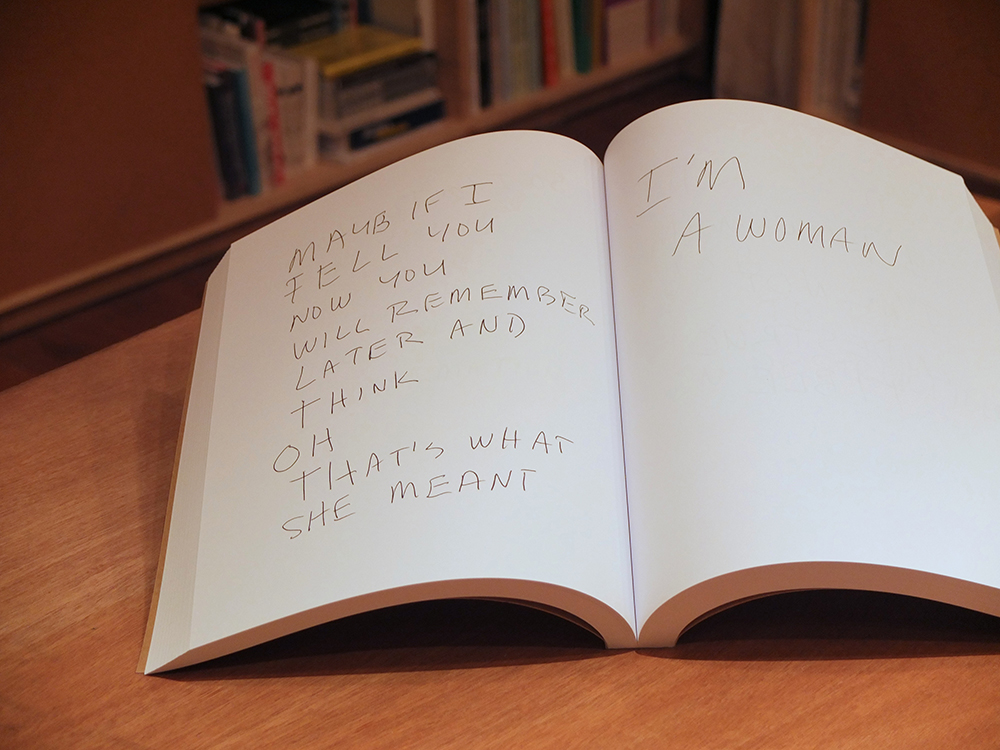 MAYB IF I
TELL YOU
NOW YOU
WILL REMEMBER
LATER AND
THINK
OH
THAT'S WHAT
SHE MEANT
I'M
A WOMAN